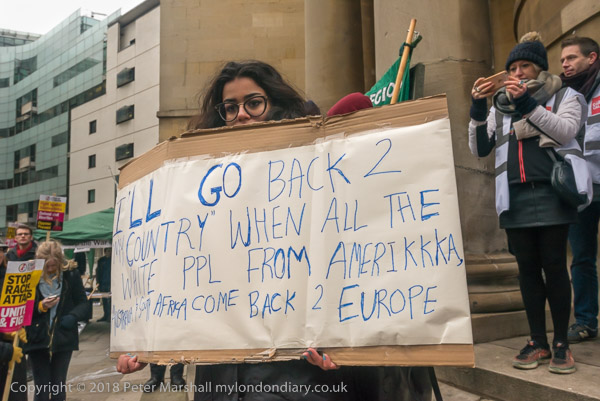 I'LL GO BACK 2
"MY COUNTRY" WHEN ALL THE
WHITE PPL FROM AMERIKKKA,
AFRICA COME BACK 2 EUROPE
STOP
RACIST
ATTACKS
Copyright © 2018 Peter Marshall mylondondiary.co.uk